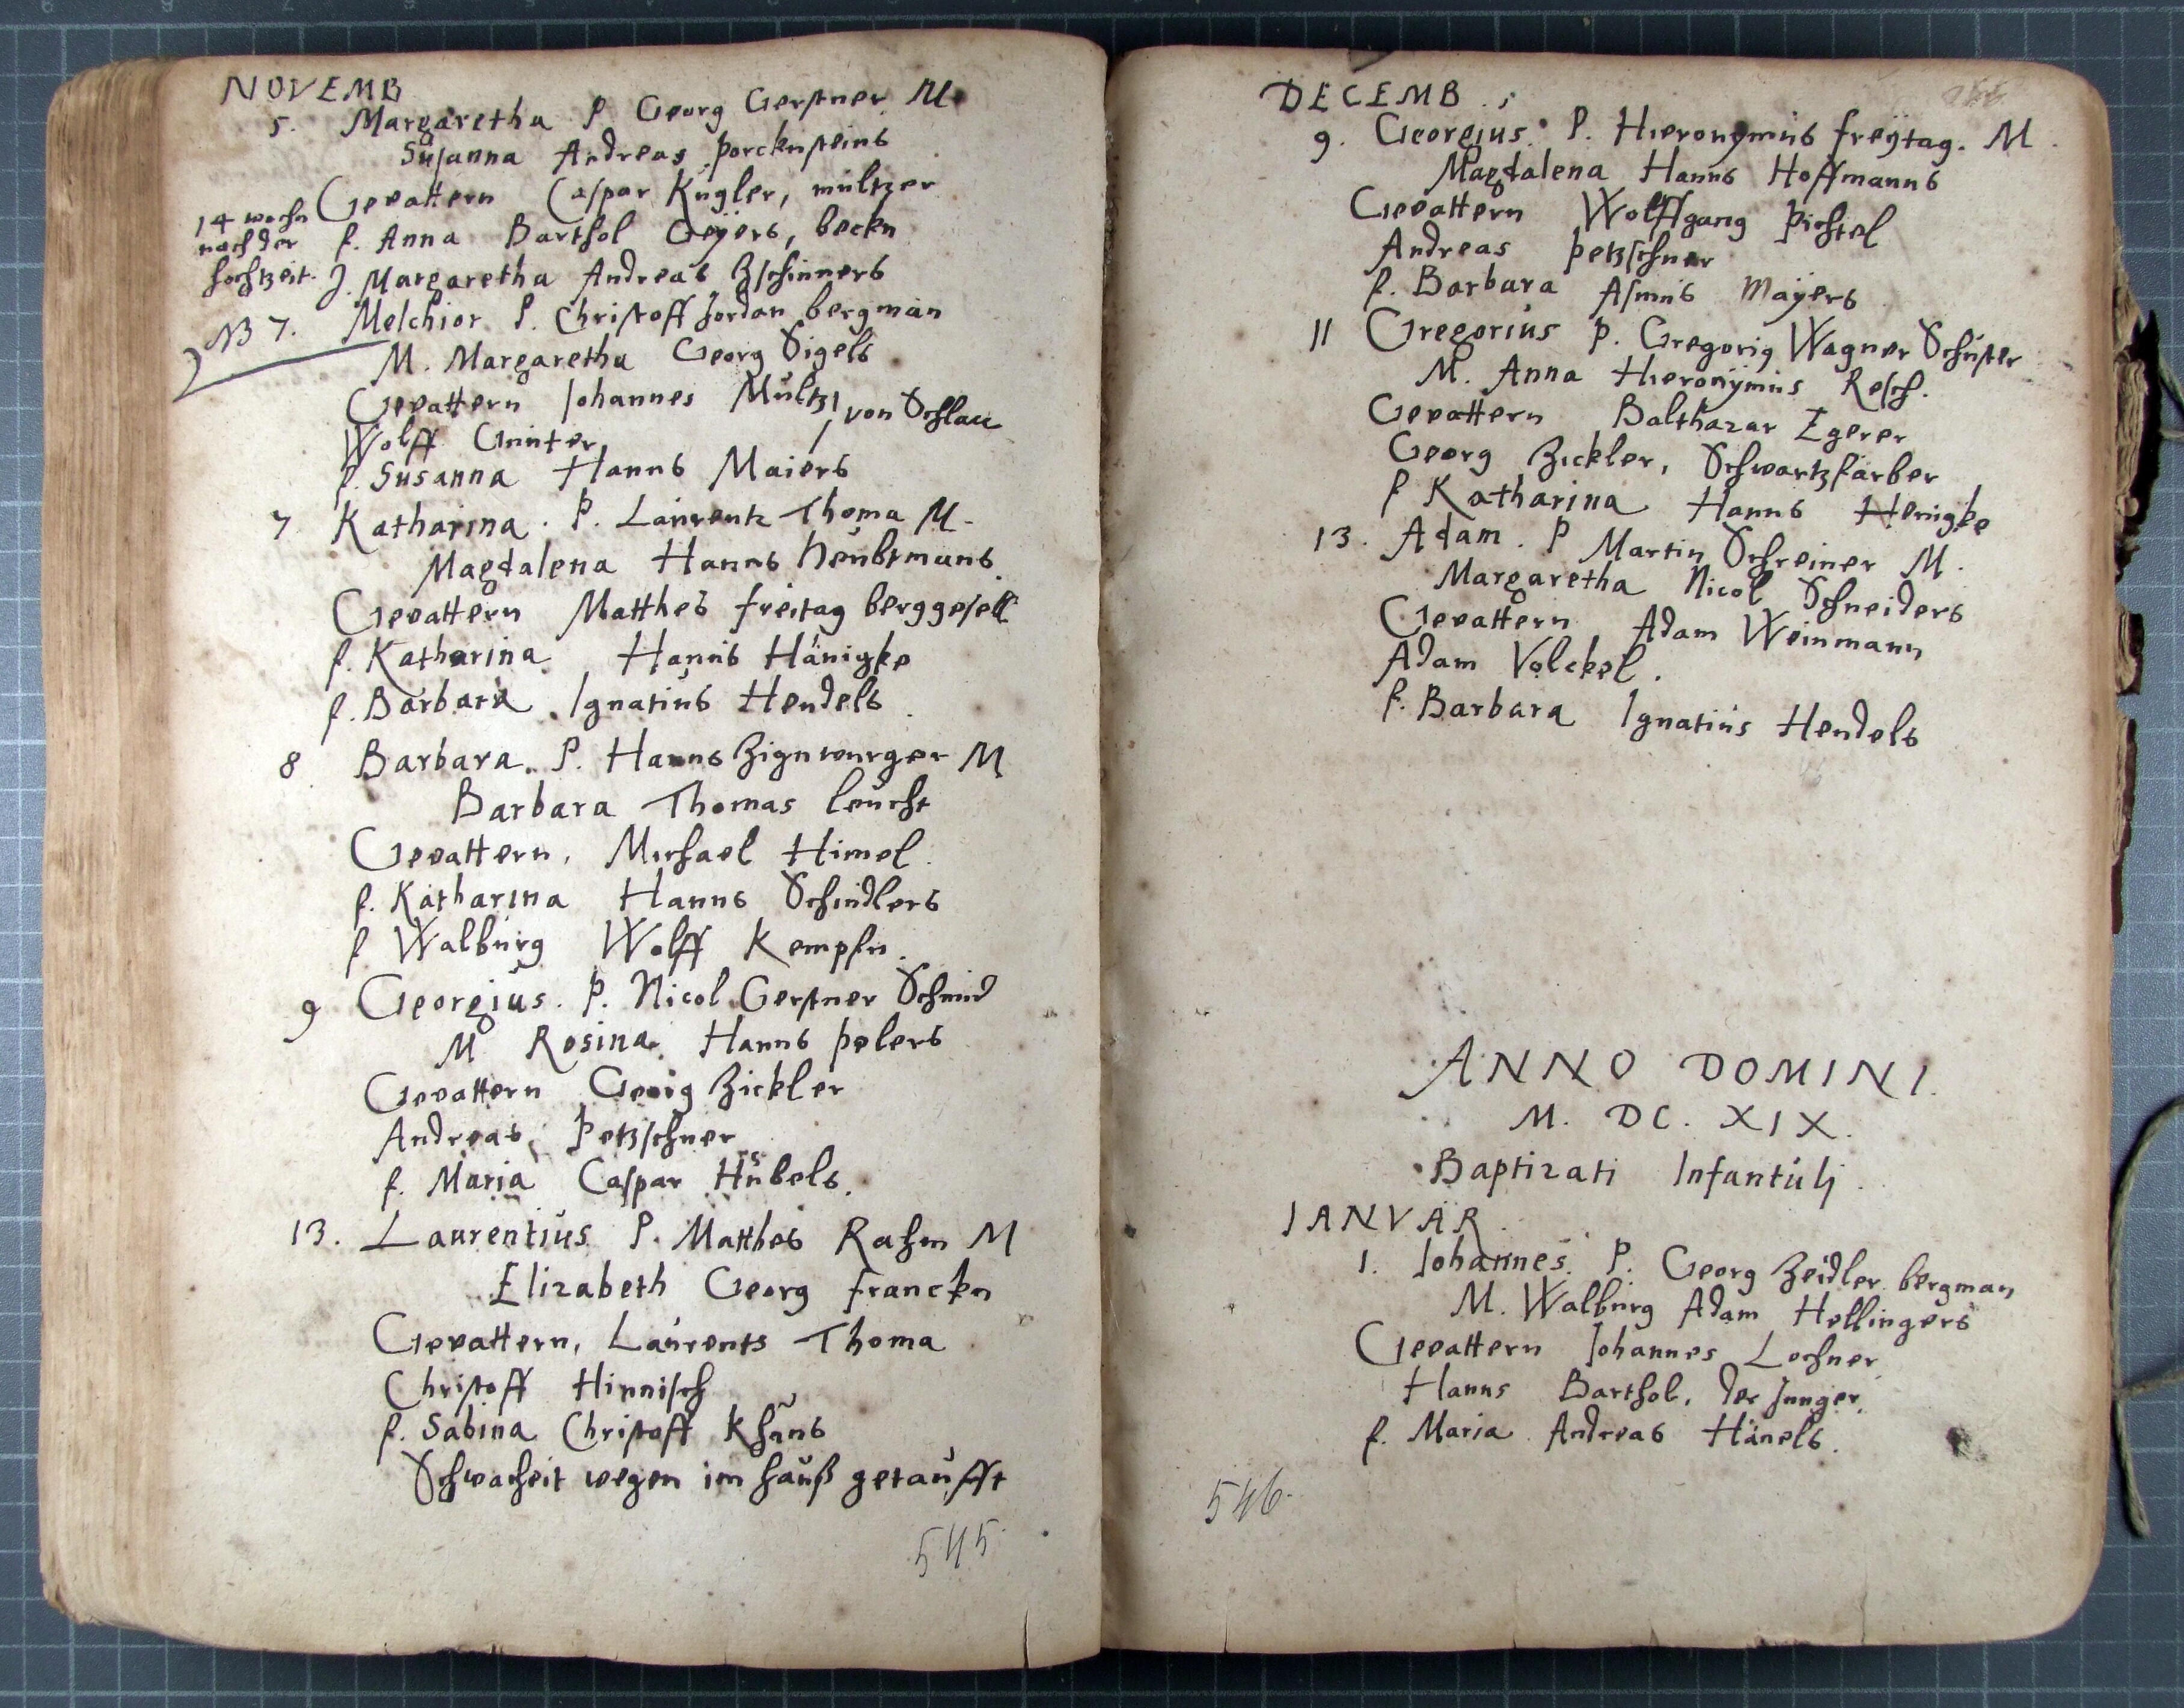 NOVEMB
5. Margaretha P Georg Gerstner M.
Susanna Andreas Porckensteins
Gevattern Caspar Kugler, multzer
14 wochn
nach der
hochtzeit.
f. Anna Barthol Geÿers, beckn
J. Margaretha Andreas Zschinners
NB 7. Melchior P. Christoff Jordan bergman
M. Margaretha Georg Sigels
Gevattern Johannes Multzl von Schlau
Wolff Gunter
f. Susanna Hanns Maiers
7 Katharina. P. Laurentz Thoma M.
Magdalena Hanns Heubtmans.
Gevattern Matthes freitag berggesell
f. Katharina Hanns Hänigke
f. Barbara Ignatius Hendels.
8 Barbara. P. Hanns Zignwurger M
Barbara Thomas leucht
Gevattern, Michael Himel.
f. Katharina Hanns Schindlers
f Walburg Wolff Kempfn.
9 Georgius. P. Nicol Gerstner Schmid
M Rosina Hanns Pelers
Gevattern Georg Zickler
Andreas Petzschner
f. Maria Caspar Hübels.
13. Laurentius P. Matthes Rahm M
Elizabeth Georg Franckn
Gevattern, Laurents Thoma
Christoff Hinnisch
f. Sabina Christoff Khuns
Schwacheit wegen im hauß getaufft
545
DECEMB.
9. Georgius. P. Hieronymus freÿtag. M.
Magdalena Hanns Hoffmanns
Gevattern Wolffgang Pichtel
Andreas Petzschner
f. Barbara Asmus Maÿers
11 Gregorius P. Gregorig Wagner Schuster
M. Anna Hieronÿmus Resch.
Gevattern Balthazar Egerer
Georg Zickler, Schwartzfärber
f Katharina Hanns Henigke
13. Adam. P Martin Schreiner M.
Margaretha Nicol Schneiders
Gevattern Adam Weinmann
Adam Volckel.
f. Barbara Ignatius Hendels
ANNO DOMINI.
M. DC. XIX.
Baptizati Infantulj.
IANVAR.
1. Johannes. P. Georg Zeidler bergman
M. Walburg Adam Hellingers
Gevattern Johannes Lochner
Hanns Barthol. der Junger.
f. Maria Andreas Hänels.
546